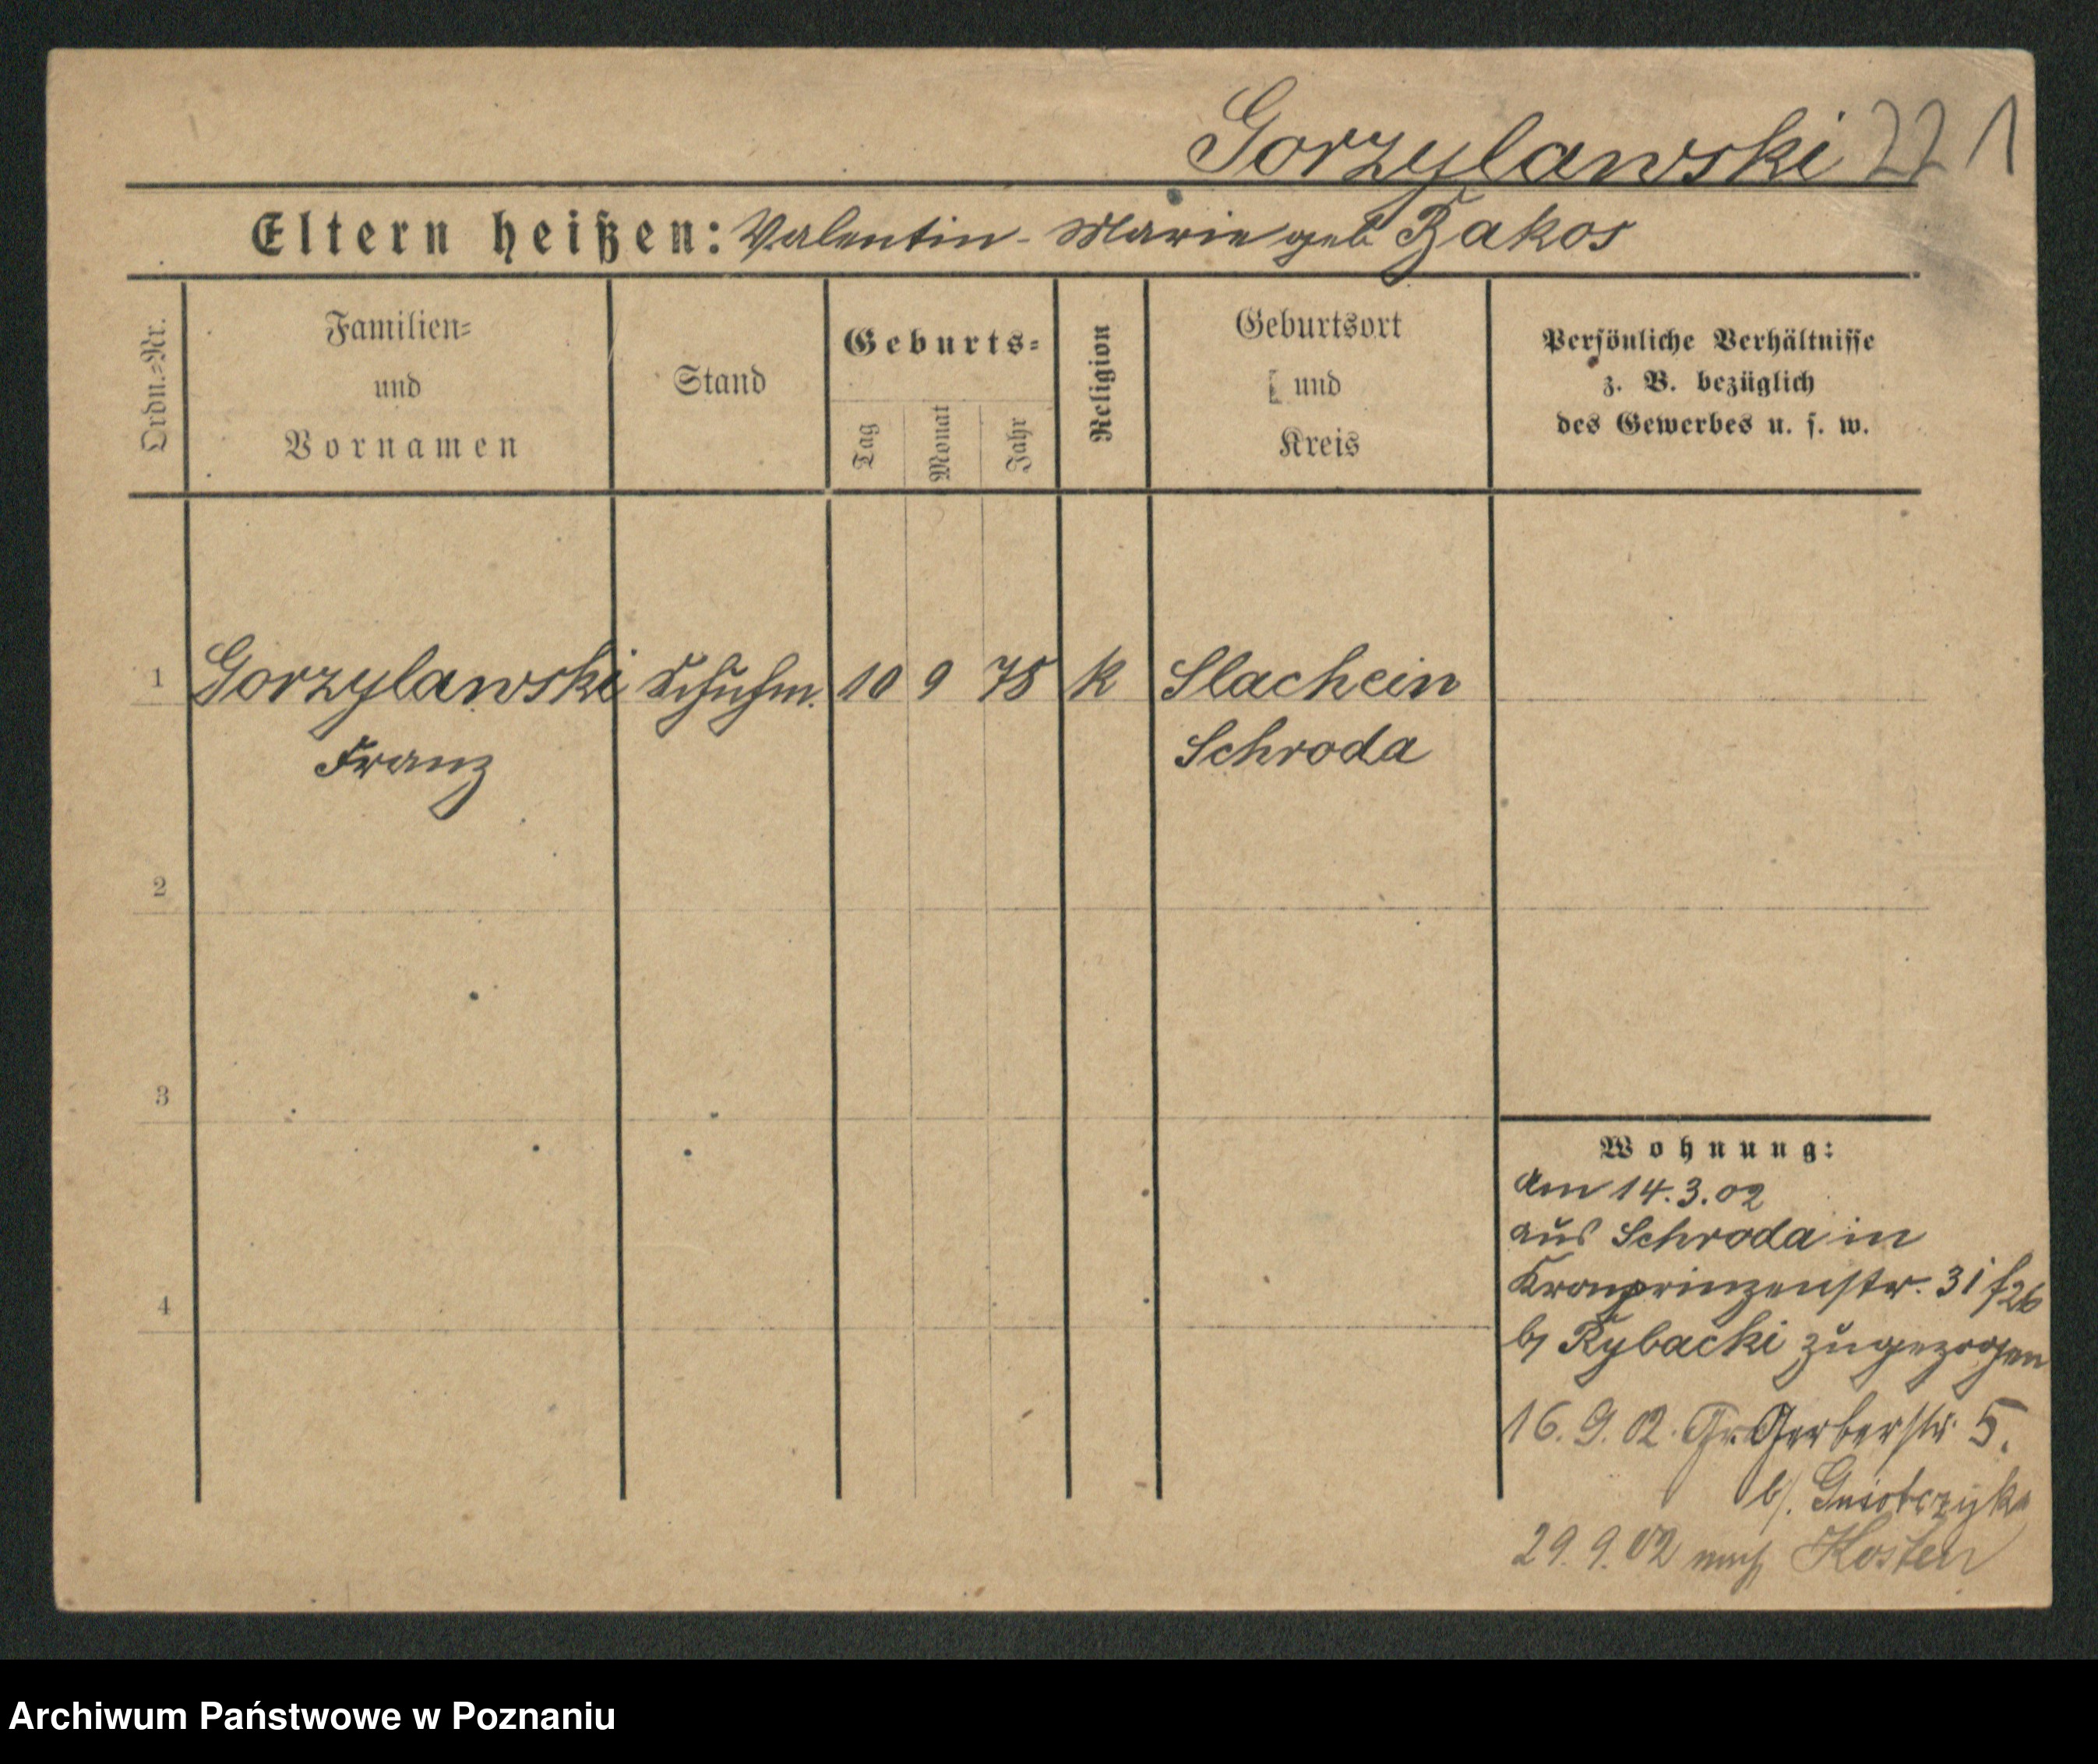 Gorzylawski 221
Eltern heißen: Valentin - Marie geb Bakos
Ordn.-Nr.
Familien-
und
Vornamen
Stand
Geburts-
Tag
Monat
Jahr
Religion
Geburtsort
und
Kreis
Persönliche Verhältnisse
z. B. bezüglich
des Gewerbes u. s. w.
1 Gorzylawski Schuhm. 10 9 78 k Slachcin
Franz Schroda
2
3
4
Wohnung:
Am 14.3.02
aus Schroda in
Kronprinzenstr. 31 f 26
b/ Rybacki zugezogen
16.9.02. Gr. Gerberstr. 5.
b/.
29.9.02 nach Kosten
Archiwum Państwowe w Poznaniu